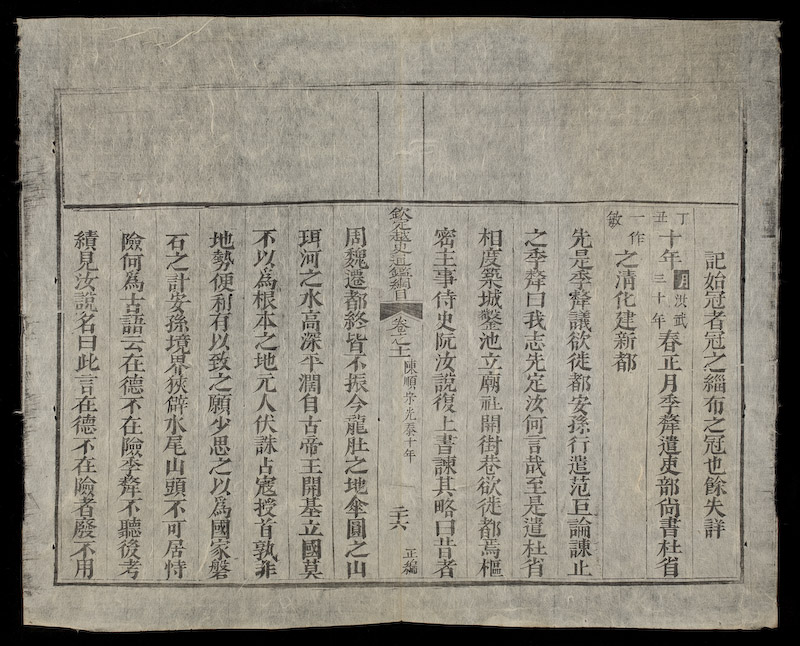 記始冠者冠之緇布之冠也餘失詳
丁丑十年明洪武三十年春正月季犛遣吏部尚書杜省
一作敏之清化建新都
先是季犛議欲徙都安孫行遣范巨論諫止
之季犛曰我志先定汝何言哉至是遣杜省
相度築城鑿池立廟社開街巷欲徙都焉樞
密主事侍史阮汝說復上書諫其略曰昔者
欽定越史通鑑綱目 卷之十一 陳順宗光泰十年 二十六 正編
周魏遷都終皆不振今龍肚之地傘圓之山
珥河之水高深平濶自古帝王開基立國莫
不以為根本之地元人伏誅占寇授首孰非
地勢便利有以致之願少思之以為國家磐
石之計安孫境界狹僻水尾山頭不可居恃
險何為古語云在德不在險季犛不聽後考
績見汝說名曰此言在德不在險者廢不用